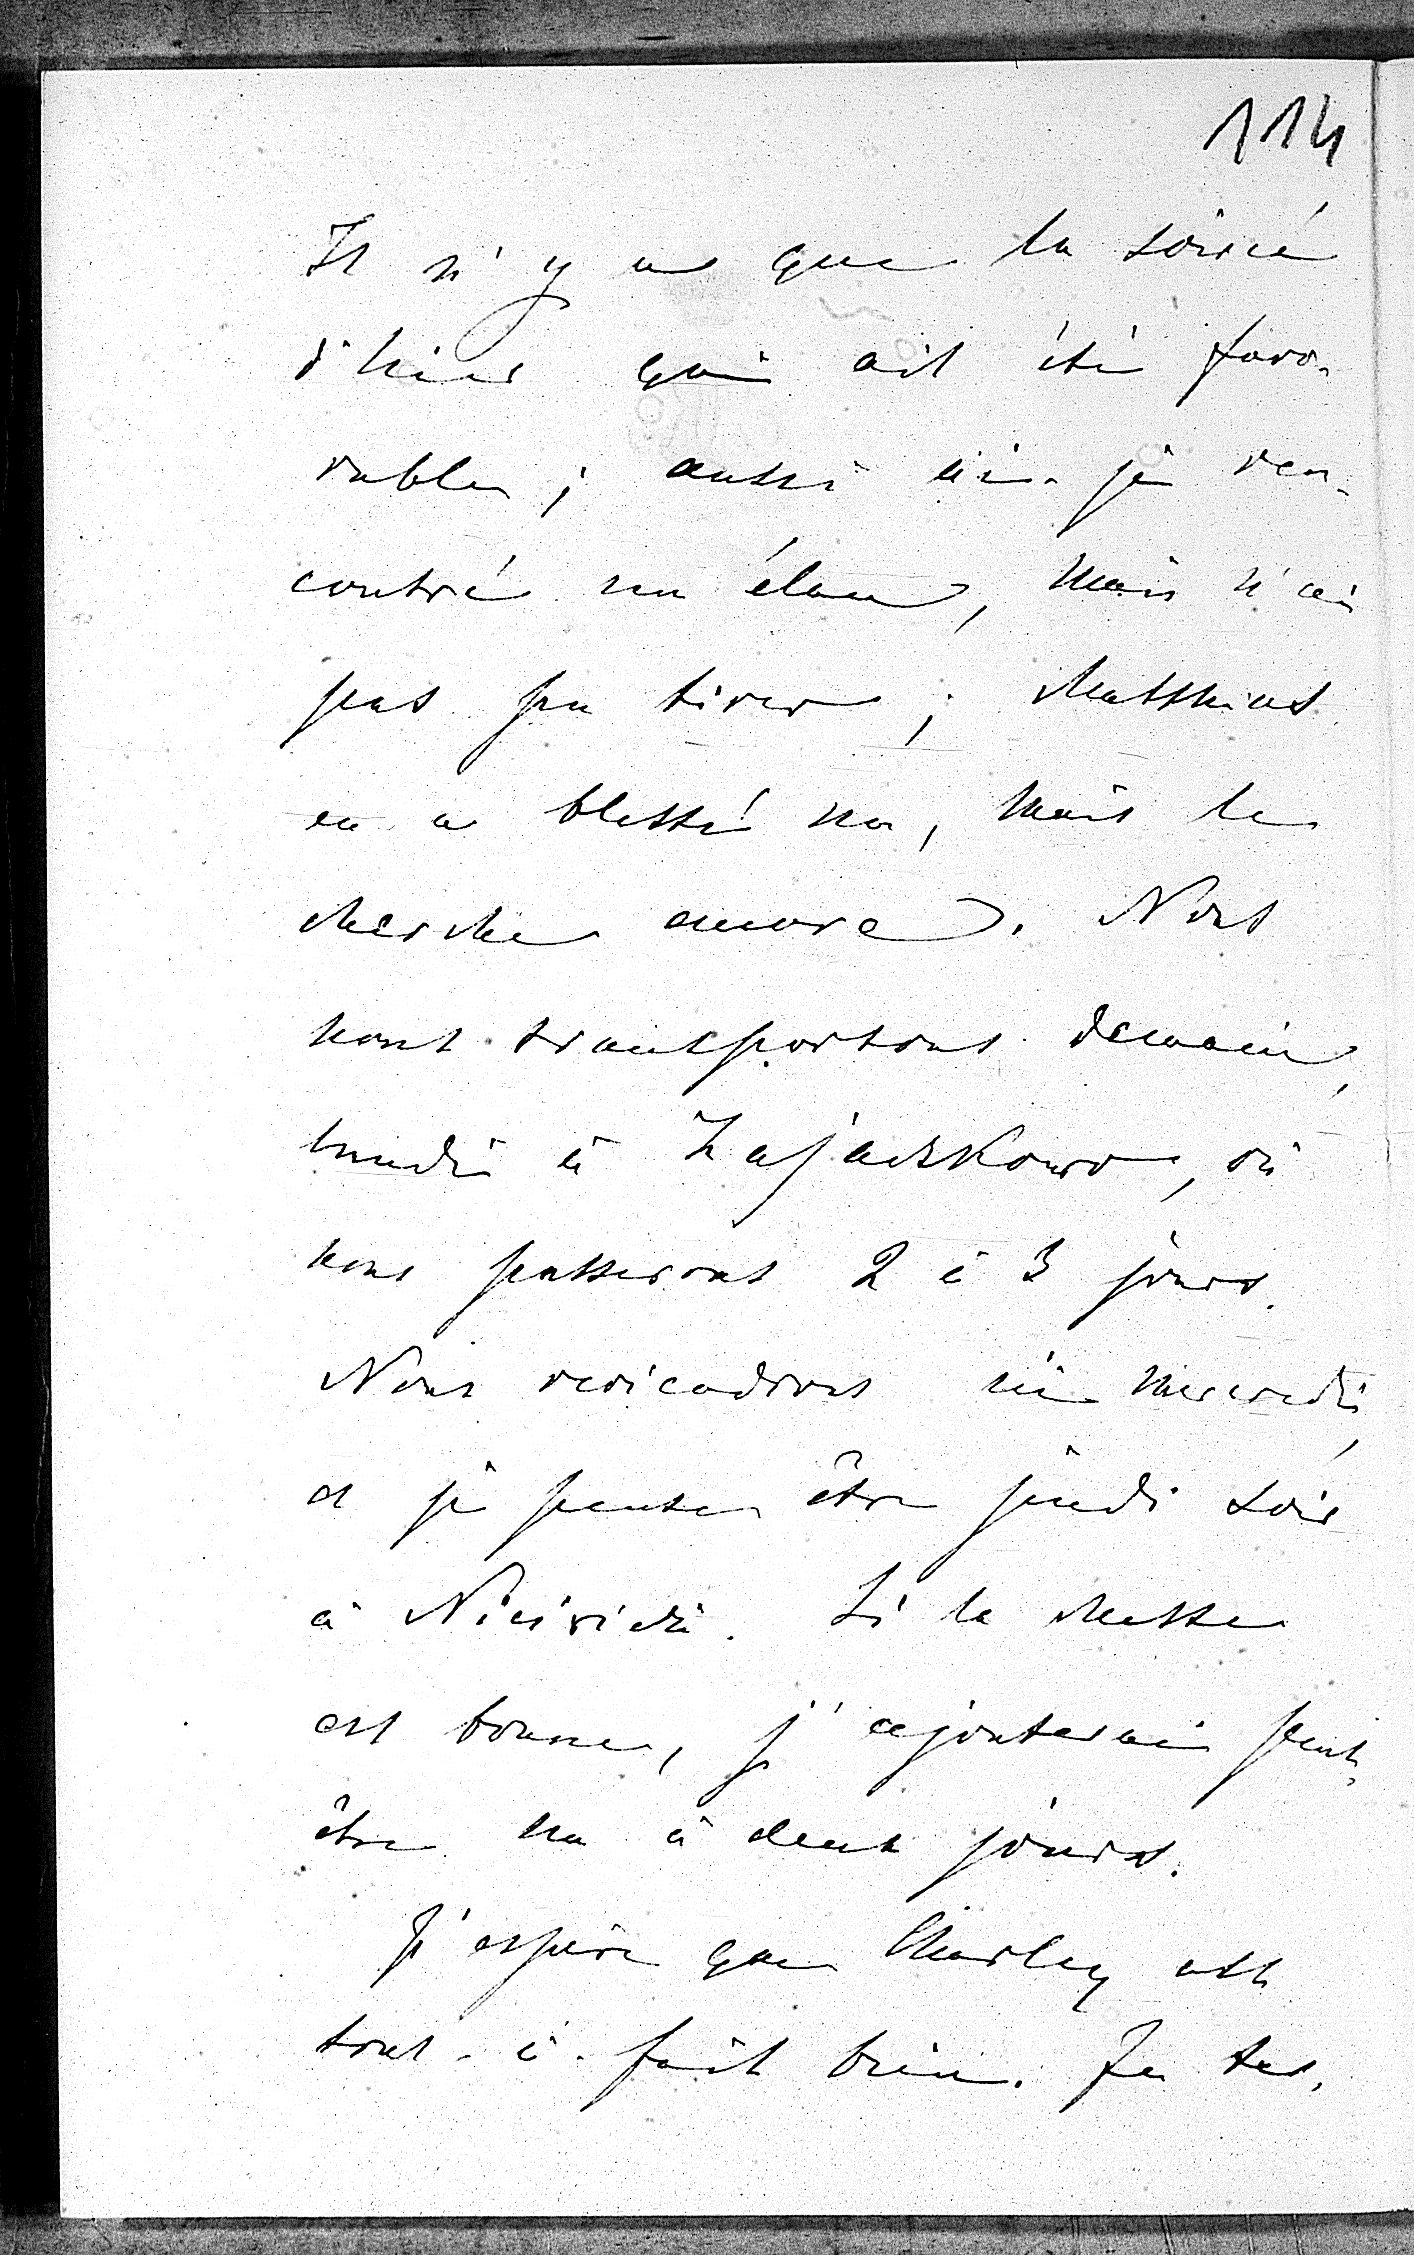 114
Il n'y a que la soirée
d'hier qui ait été favo-
rable ; aussi ai-je ren-
contré un élan, mais n'ai
pas pu tirer ; Matthias
en a blessé un, mais le
cherche encore. Nous
nous transportons demain,
lundi à Zajaczkowo, où
nous passerons 2 à 3 jours.
Nous reviendrons ici mercredi,
et je pense être jeudi soir
à Nieśwież. Si la chasse
est bonne, j'ajouterai peut-
être un à deux jours.
J'espère que Charley est
tout-à-fait bien. Je tes-